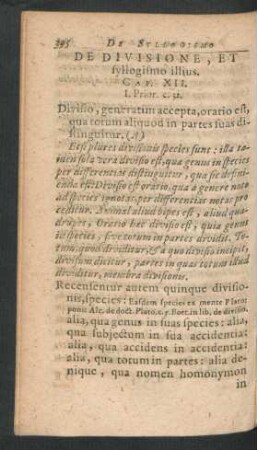 395 DE SYLLOGISMO
DE DIVISIONE, ET
syllogismo illius.
CAP. XII.
I. Prior. c. 31.
Divisio, generatim accepta, oratio est,
qua totum aliquod in partes suas di-
stinguitur. (A)
Etsi plures divisionis species sunt: illa ta-
men sola vera divisio est, qua genus in species
per differentias distinguitur, quae sic defini-
enda est: Divisio est oratio, qua a genere noto
ad species ignotas per differentias notas pro-
ceditur. Animal aliud bipes est, aliud qua-
drupes, Oratio haec divisio est, quia genus
in species, sive totum in partes dividit. To-
tum, quod dividitur, & a quo divisio incipit,
divisum dicitur, partes in quas totum illud
dividitur, membra divisionis.
Recensentur autem quinque divisio-
nis, species: Easdem species ex mente Platonis
ponit Alc. de doct. Plato. c. 5. Boet. in lib. de division.
alia, qua genus in suas species: alia,
qua subjectum in sua accidentia:
alia, qua accidens in accidentia:
alia, qua totum in partes: alia de-
nique, qua nomen homonymon
in